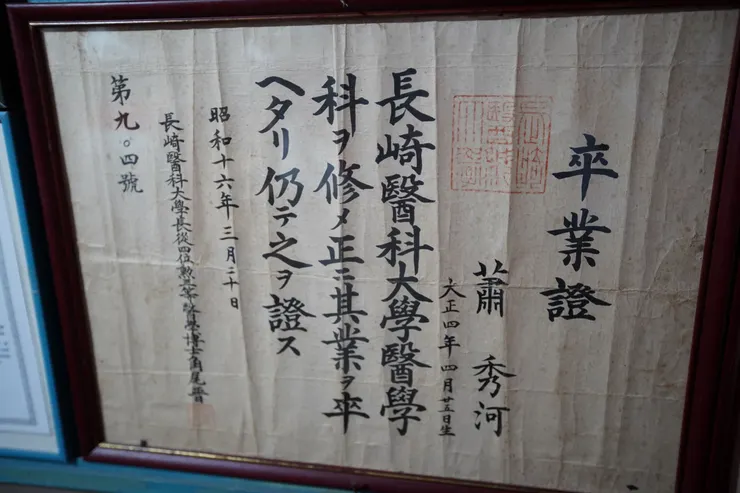 卒業證
蕭 秀河
大正四年四月廿五日生
長崎醫科大學醫學
科ヲ修メ正ニ其業ヲ卒
ヘタリ仍テ之ヲ證ス
昭和十六年三月二十日
長崎醫科大學長從四位勲三等醫學博士角尾晋
第九〇四號